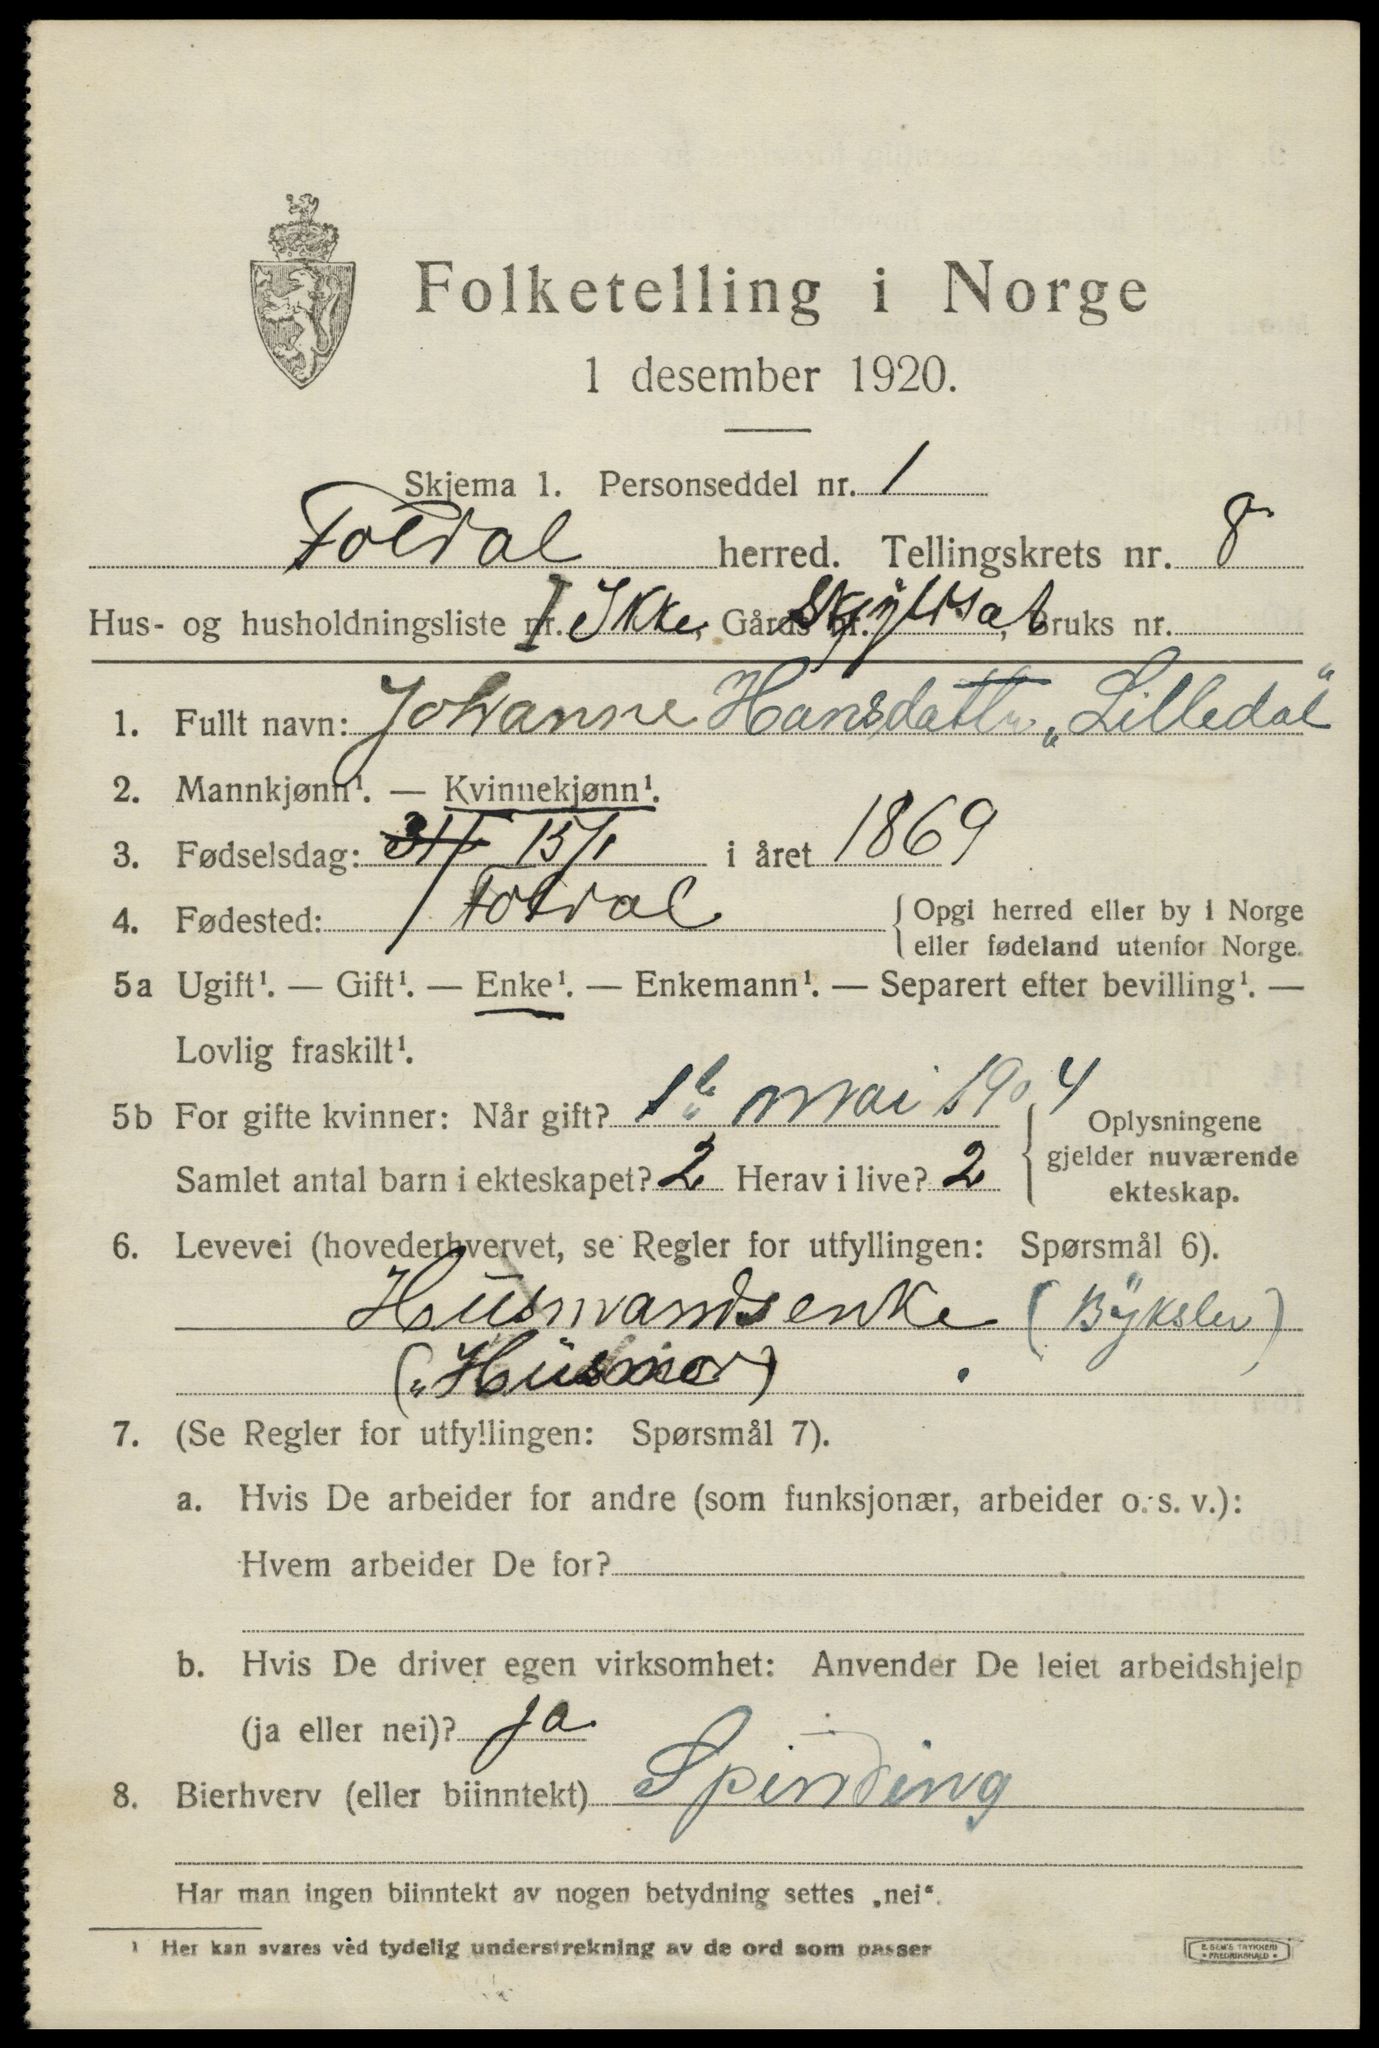 Folketelling i Norge
1 desember 1920.
Skjema 1. Personseddel nr. 1
Foldal herred. Tellingskrets nr. 8
Hus- og husholdningsliste nr. Ikke, Gårds nr. Skyldsat, Bruks nr.
1. Fullt navn: Johanne Hansdatter „Lilledal“
2. Mannkjønn¹. — Kvinnekjønn¹.
3. Fødselsdag: 15/1 i året 1869
4. Fødested: Foldal { Opgi herred eller by i Norge
eller fødeland utenfor Norge.
5a Ugift¹. — Gift¹. — Enke¹. — Enkemann¹. — Separert efter bevilling¹. —
Lovlig fraskilt¹.
5b For gifte kvinner: Når gift? 1ste mai 1904
Samlet antal barn i ekteskapet? 2 Herav i live? 2
Oplysningene
gjelder nuværende
ekteskap.
6. Levevei (hovederhvervet, se Regler for utfyllingen: Spørsmål 6).
Husmandsenke (Byksler)
(„Husmor)
7. (Se Regler for utfyllingen: Spørsmål 7).
a. Hvis De arbeider for andre (som funksjonær, arbeider o. s. v.):
Hvem arbeider De for?
b. Hvis De driver egen virksomhet: Anvender De leiet arbeidshjelp
(ja eller nei)? ja
8. Bierhverv (eller biinntekt) Spinding
Har man ingen biinntekt av nogen betydning settes „nei“.
¹ Her kan svares ved tydelig understrekning av de ord som passer
E. SEM'S TRYKKERI
• FREDRIKSHALD •